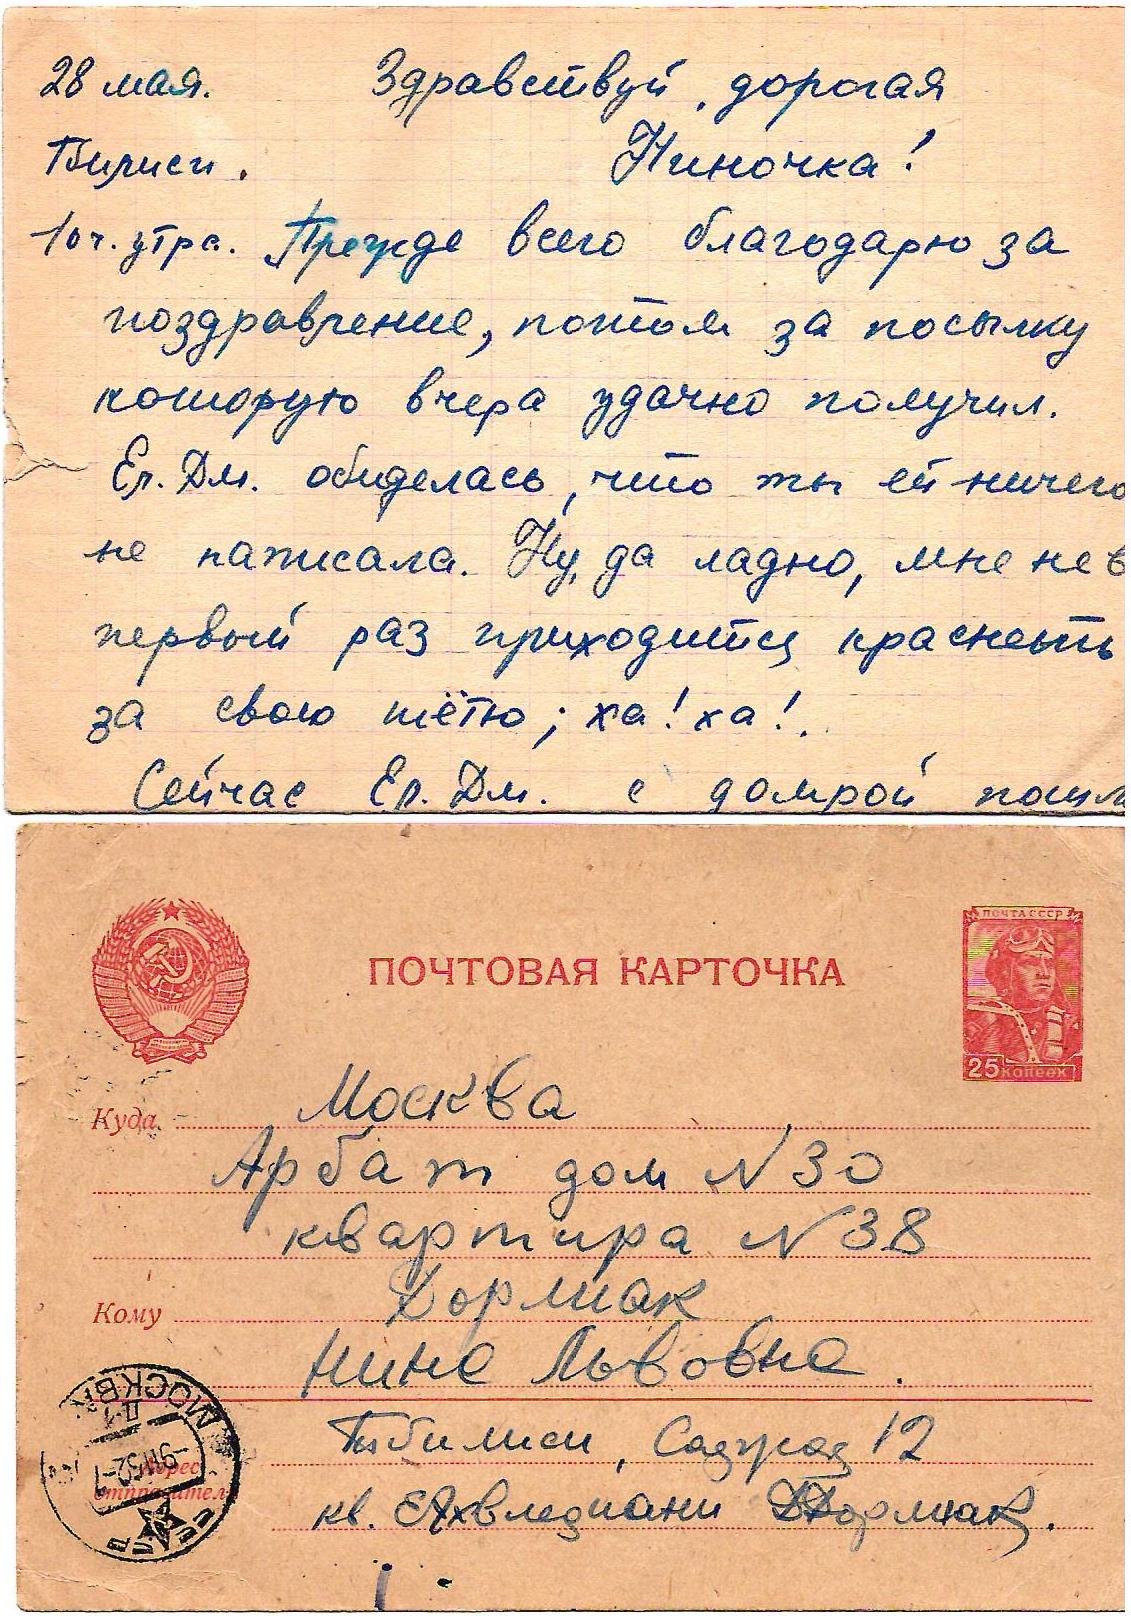 28 мая. Здравствуй, дорогая
Тбилиси. Ниночка!
10 ч. утра. Прежде всего благодарю за
поздравление, потом за посылку
которую вчера удачно получил.
Ел. Дм. обиделась, что ты ей ничего
не написала. Ну, да ладно, мне не в
первый раз приходится краснеть
за свою тётю; ха! ха!.
Сейчас Ел. Дм. с домрой
ПОЧТА СССР
ПОЧТОВАЯ КАРТОЧКА
25 КОПЕЕК
Куда Москва
Арбат дом N 30
квартира N 38
Кому Дорлиак
Нине Львовне.
МОСКВА
СССР
Тбилиси, 12
кв. Ахвледиани Дорлиак.